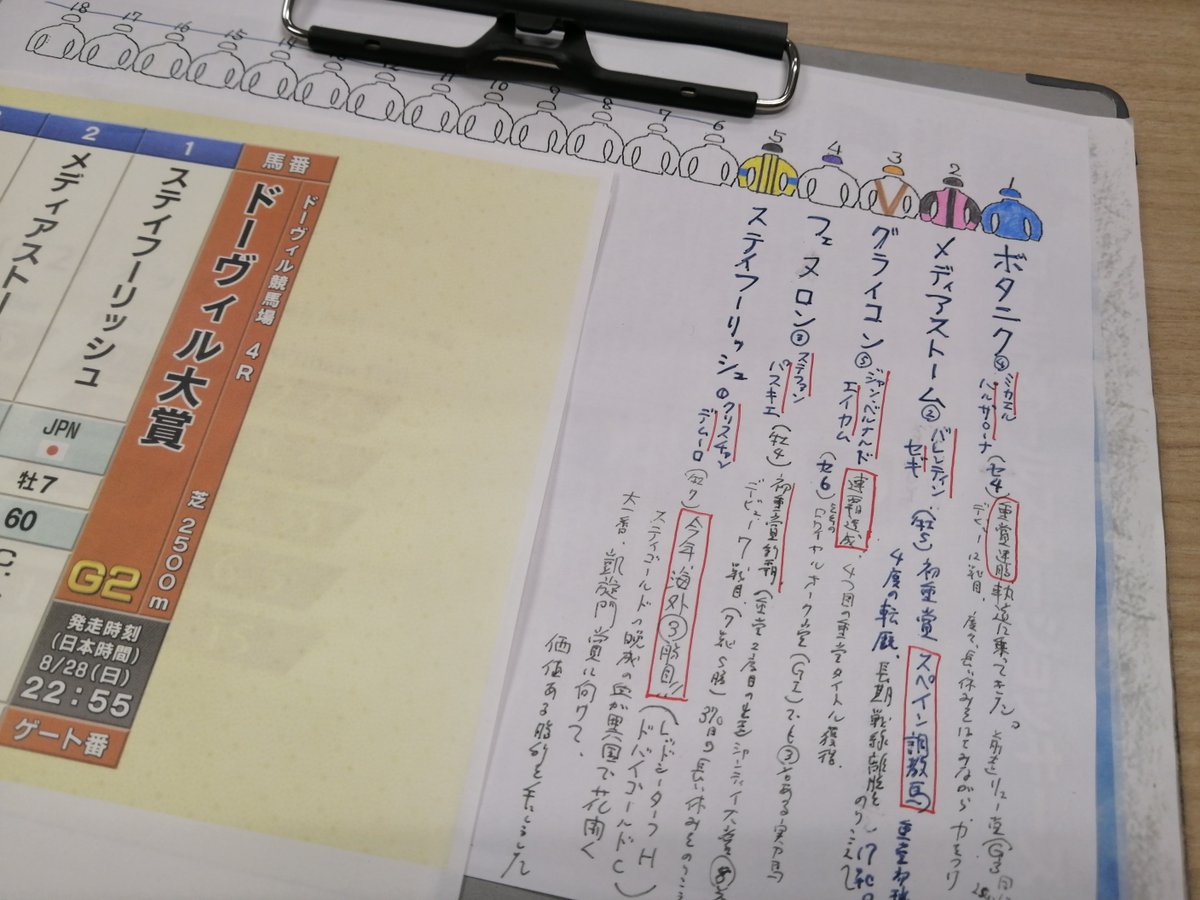 18
17
16
15
14
13
12
11
10
9
8
7
6
5
4
3
2
1
ボタニク④
ミカエル
バルザローナ
(セ4)
重賞連勝
軌道に乗ってキタゾ。
デビュー12戦目
メディアストーム②
バレンティン
セギ
(牡5)初重賞
スペイン調教馬
4度の転厩、長期戦線離脱を
のりこえて
グライコン⑤
ジャン・ベルナルド
エイカム
(セ6)
連覇達成
4つ目の重賞タイトル獲得
ロワイヤルオーク賞(G1)でも③
ある実力馬
フェヌロン③
ステファン
パスキエ
(牡4)
初重賞制覇
デビュー7戦目(7戦5勝)
長い休みをのりこ
ステイフーリッシュ①
クリスチャン
デムーロ
(牡7)
今年、海外③勝目!!
(レッドシーターフH
ドバイゴールドC)
ステイゴールドの晩成の血が異国で花開く
大一番、凱旋門賞に向けて、
価値ある勝利を手にしました
馬番
ドーヴィル競馬場 4R
ドーヴィル大賞
芝2500m
G2
発走時刻
(日本時間)
8/28(日)
22:55
ゲート番
1
ステイフーリッシュ
JPN
牡7
60
C.
2
メディアストー